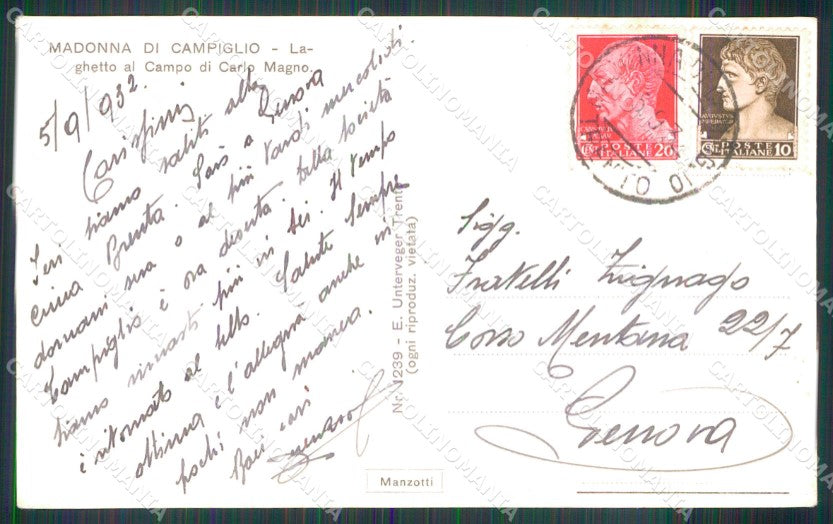 MADONNA DI CAMPIGLIO - La-
ghetto al Campo di Carlo Magno.
5/9/932.
Carissimi
Ieri siamo saliti alla
cima Brenta. Sarò a Genova
domani sera o al più tardi mercoledì.
Campiglio è ora deserta. Della società
siamo rimasti più in sei. Il tempo
è ritornato al bello. Salute sempre
ottima e l'allegria anche in
pochi non manca.
Baci cari
Nr. 1239 - E. Unterveger Trento
(ogni riproduz. vietata)
Manzotti
POSTE
ITALIANE
20
AVGVSTVS
IMPERATOR
POSTE
ITALIANE
10
Sigg.
Fratelli Zignago
Corso Mentana 22/7
Genova
CARTOLINOMANIA